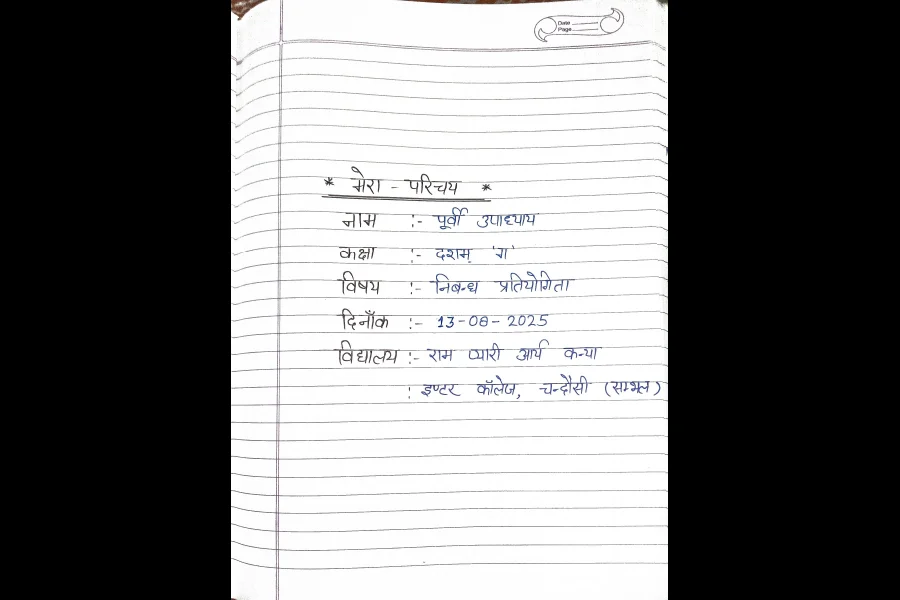 Date
Page
* मेरा - परिचय *
नाम :- पूर्वी उपाध्याय
कक्षा :- दशम् 'ग'
विषय :- निबन्ध प्रतियोगिता
दिनाँक :- 13-08-2025
विद्यालय :- राम प्यारी आर्य कन्या
: इण्टर कॉलेज, चन्दौसी (सम्भल)